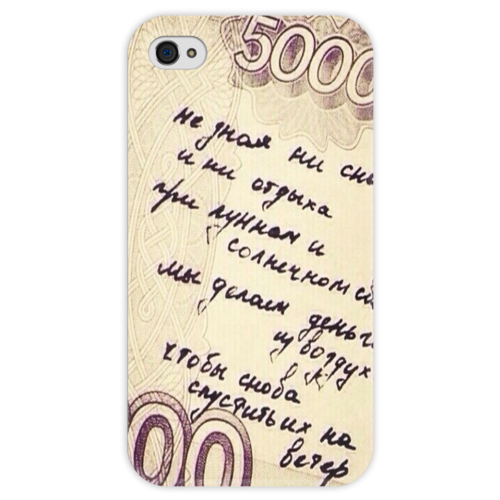 5000
не зная ни сна
и ни отдыха
при лунном и
солнечном св
мы делаем деньг
из воздух
чтобы снова
спустить их на
ветер
00